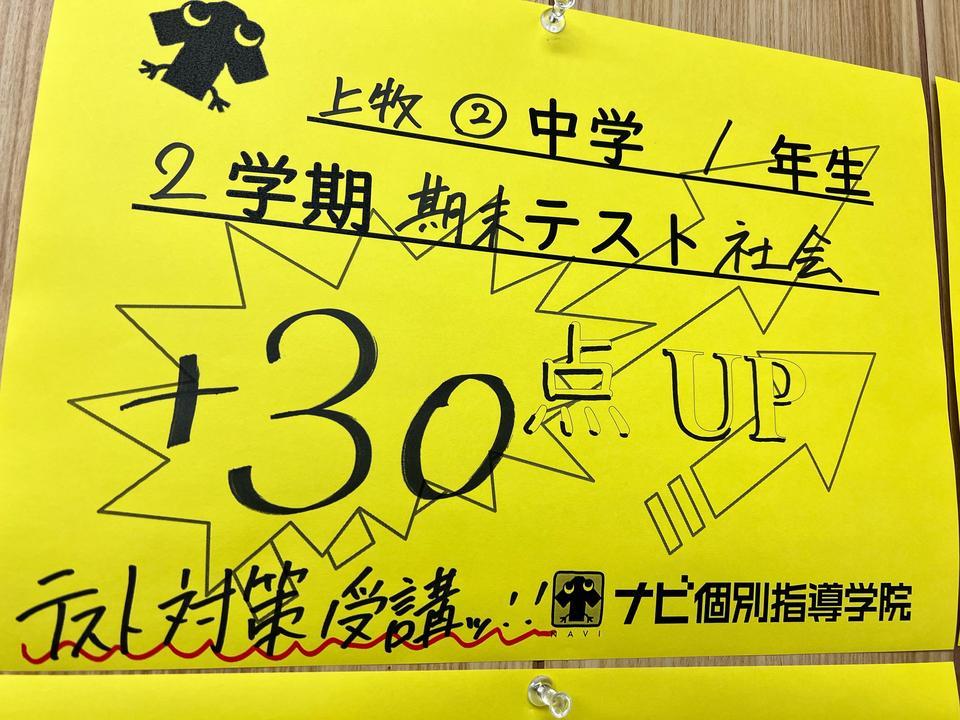 上牧 ② 中学 1 年生
2 学期 期末 テスト 社会
+30 点 UP
テスト対策 受講ッ!!
NAVI
ナビ個別指導学院